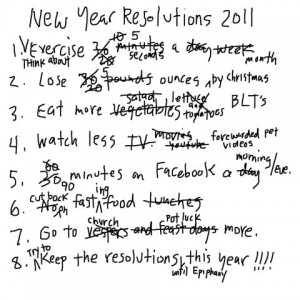 New Year Resolutions 2011
10 5
1. Exercise 30 minutes a day week
Think about seconds month
2. Lose 30 20 5 pounds ounces by christmas
salad lettuce and BLT's
3. Eat more vegetables tomatoes
4. Watch less T.V. movies youtube forewarded pet videos
5. 60 30 90 minutes on Facebook a day morning/eve.
cut back ing
6. No on fast food lunches
church potluck
7. Go to vespers and feast days more.
8. Try to Keep the resolutions this year !!!!
until Epiphany